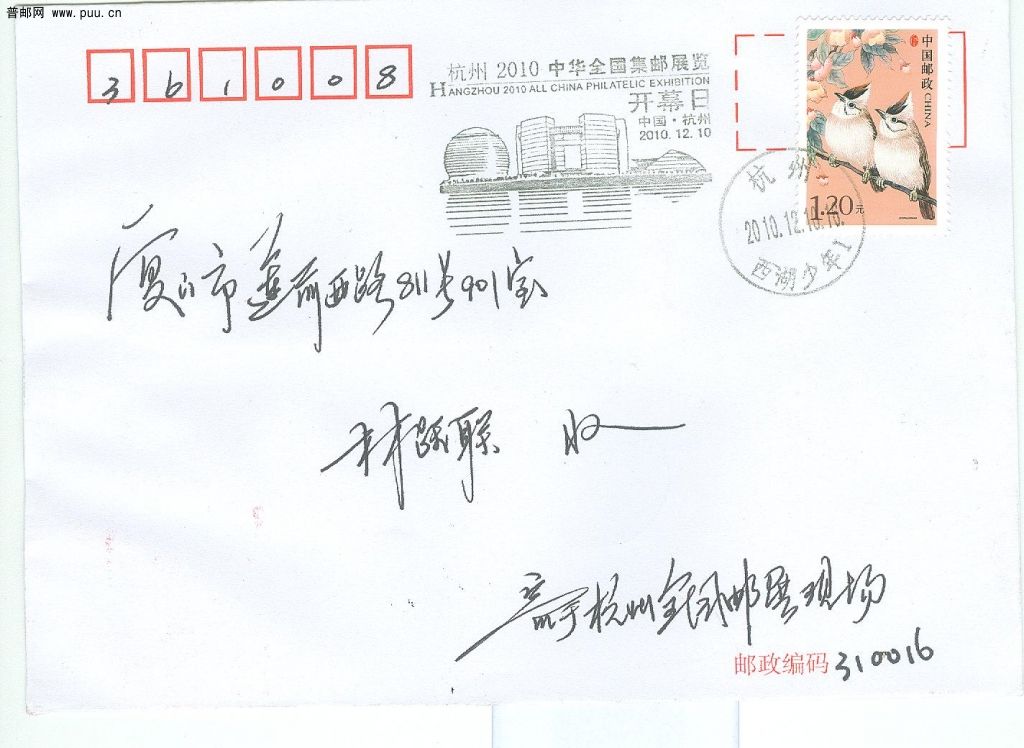 普邮网 www.puu.cn
361008
杭州 2010 中华全國集邮展览
HANGZHOU 2010 ALL CHINA PHILATELIC EXHIBITION
开幕日
中国·杭州
2010.12.10
中国邮政 CHINA
1.20元
杭州
2010.12.10.10.
西湖少年1
厦门市莲前西路811号901室
林跃联 收
寄于杭州全国邮展现场
邮政编码 310016